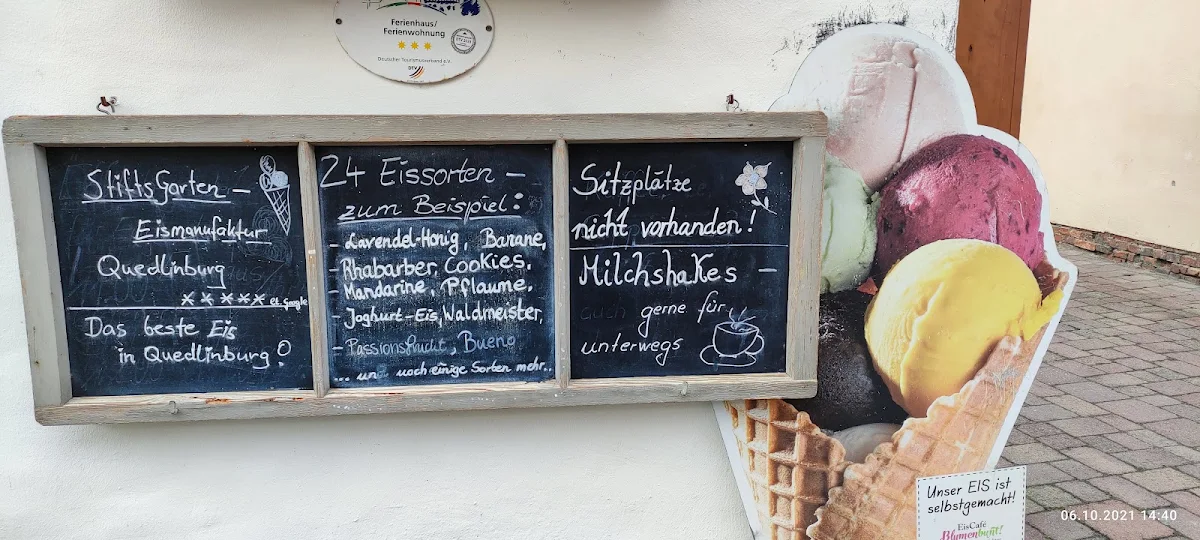 Ferienhaus/
Ferienwohnung
Deutscher Tourismusverband e.V.
DTV
StiftsGarten –
Eismanufaktur
Quedlinburg
xxxxx lt. Google
Das beste Eis
in Quedlinburg!
24 Eissorten –
zum Beispiel:
– Lavendel-Honig, Banane,
– Rhabarber, Cookies,
– Mandarine, Pflaume,
– Joghurt-Eis, Waldmeister,
– Passionsfrucht, Bueno
... und noch einige Sorten mehr..
Sitzplätze
nicht vorhanden!
Milchshakes –
auch gerne für
unterwegs
Unser EIS ist
selbstgemacht!
EisCafé
Blumenbunt!
06.10.2021 14:40